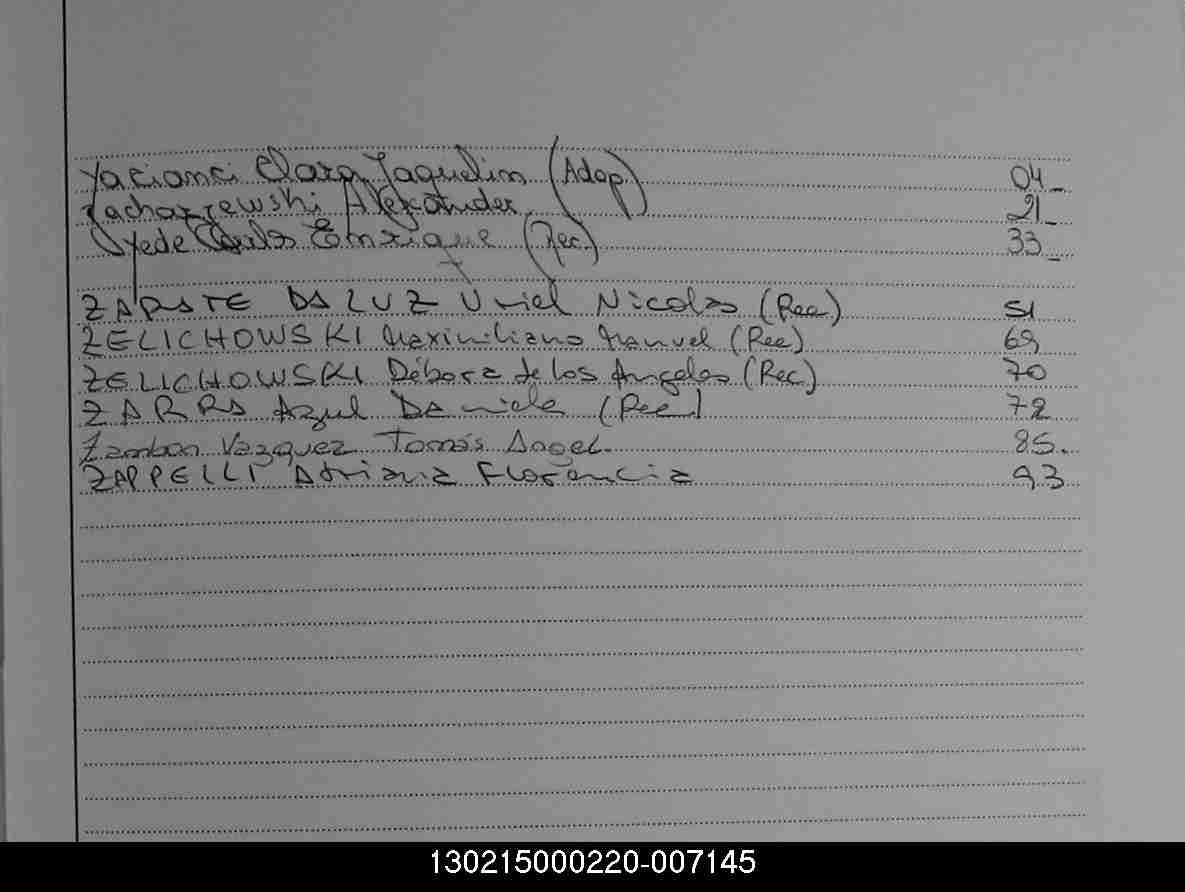 Yacionci Clara Jaquelin (Adop) 04_
Zacharzewski Alexander 21_
Oyede Carlos Enrique (Rec) 33_
ZARATE DA LUZ Uriel Nicolas (Rec) 51
ZELICHOWSKI Maximiliano Manuel (Rec) 69
ZELICHOWSKI Débora de los Angeles (Rec) 70
ZARRA Azul Daniela (Rec) 72
Zambon Vazquez Tomás Angel. 85.
ZAPPELLI Adriana Florencia 93
130215000220-007145